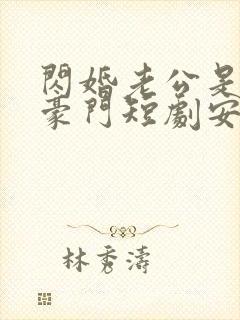 閃婚老公是
豪門短劇安
林秀濤